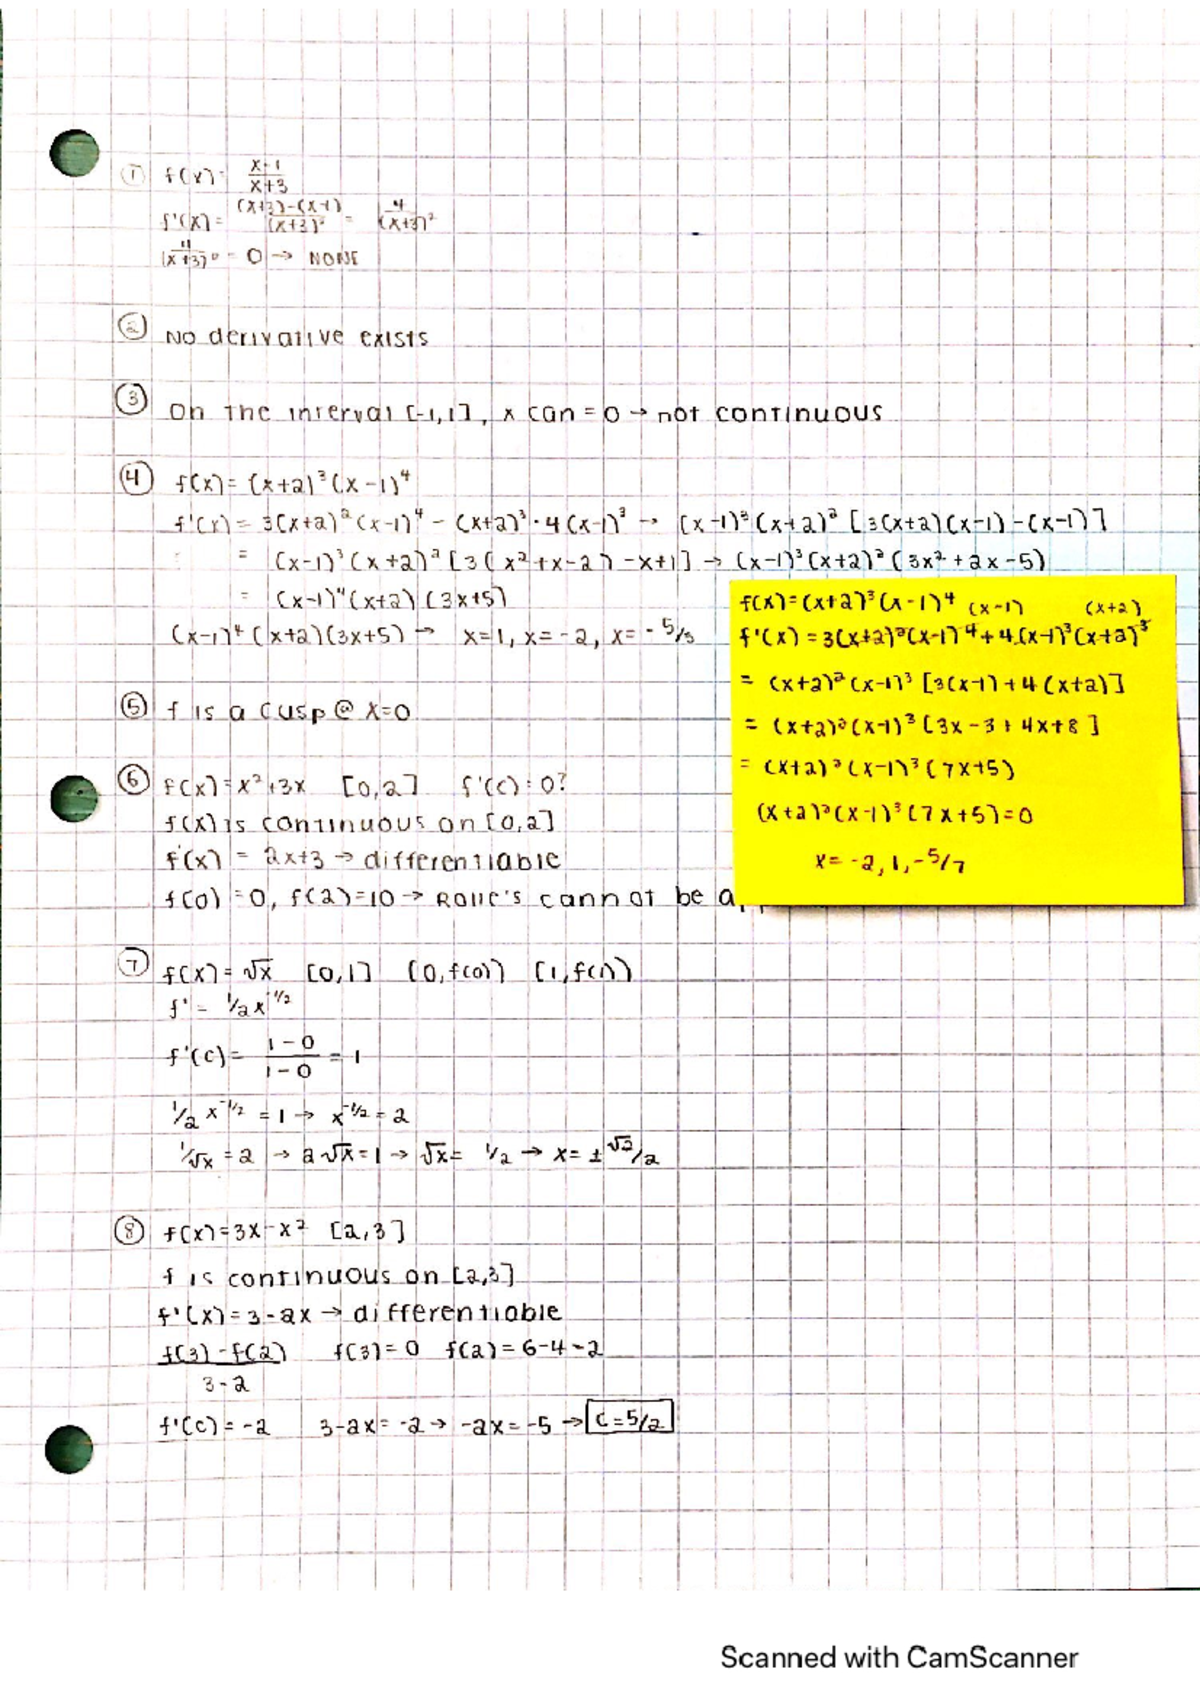 ① f(x) = x-1/x+3
f'(x) = (x+3)-(x-1)/(x+3)² = 4/(x+3)²
4/(x+3)² = 0 → NONE
② No derivative exists
③ On the interval [-1,1], x can = 0 → not continuous
④ f(x) = (x+2)³(x-1)⁴
f'(x) = 3(x+2)²(x-1)⁴ - (x+2)³·4(x-1)³ → (x-1)³(x+2)²[3(x+2)(x-1)-(x-1)]
= (x-1)³(x+2)²[3(x²+x-2)-x+1] → (x-1)³(x+2)²(3x²+2x-5)
= (x-1)⁴(x+2)(3x+5)
(x-1)⁴(x+2)(3x+5) → x=1, x=-2, x=-5/3
f(x)=(x+2)³(x-1)⁴ (x-1) (x+2)
f'(x) = 3(x+2)²(x-1)⁴+4(x-1)³(x+2)³
= (x+2)²(x-1)³[3(x-1)+4(x+2)]
= (x+2)²(x-1)³[3x-3+4x+8]
= (x+2)²(x-1)³(7x+5)
(x+2)²(x-1)³(7x+5)=0
x= -2, 1, -5/7
⑤ f is a cusp @ x=0
⑥ f(x)=x²+3x [0,2] f'(c)=0?
f(x) is continuous on [0,2]
f'(x) = 2x+3 → differentiable
f(0)=0, f(2)=10 → Rolle's cannot be
⑦ f(x)=√x [0,1] (0,f(0)) (1,f(1))
f' = 1/2 x^-1/2
f'(c)= 1-0/1-0 = 1
1/2 x^-1/2 = 1 → x^-1/2 = 2
1/√x = 2 → 2√x=1 → √x= 1/2 → x= ±√2/2
⑧ f(x)=3x-x² [2,3]
f is continuous on [2,3]
f'(x)=3-2x → differentiable
f(3)-f(2)/3-2 f(3)=0 f(2)=6-4=2
f'(c)=-2 3-2x=-2 → -2x=-5 → c=5/2
Scanned with CamScanner